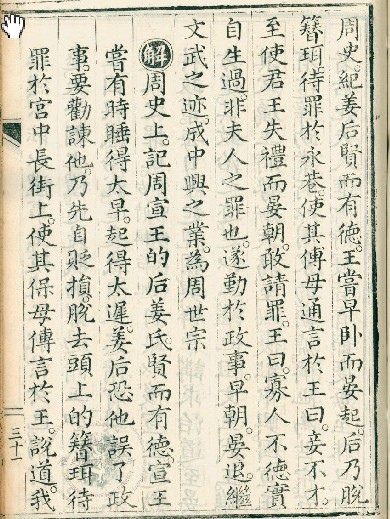 周史紀姜后賢而有德王嘗早卧而晏起后乃脱
簪珥待罪於永巷使其傅母通言於王曰妾不才
至使君王失禮而晏朝敢請罪王曰寡人不德實
自生過非夫人之罪也遂勤於政事早朝晏退繼
文武之迹成中興之業為周世宗
解周史上記周宣王的后姜氏賢而有德宣王
嘗有時睡得太早起得太遲姜后恐他誤了政
事要勸諫他乃先自貶損脱去頭上的簪珥待
罪於宮中長街上使其保母傳言於王說道我
三十一